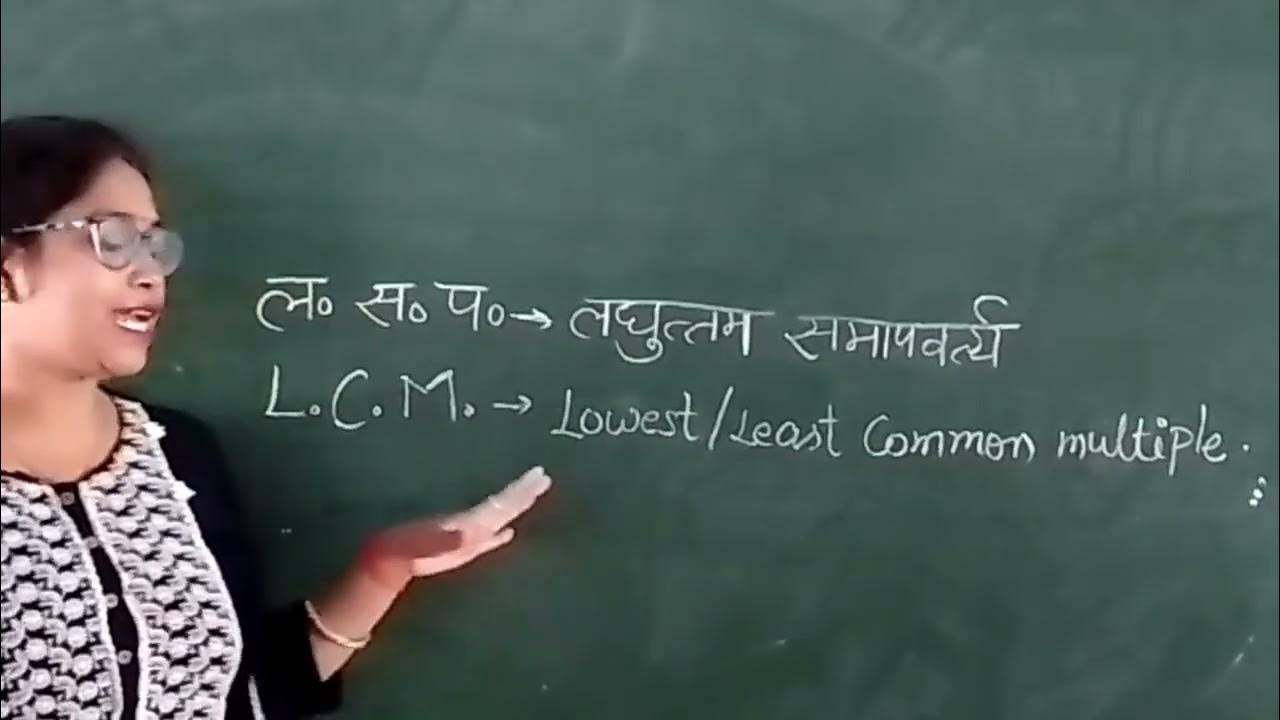 ल॰ स॰ प॰ → लघुत्तम समापवर्त्य
L.C.M. → Lowest/Least Common multiple.